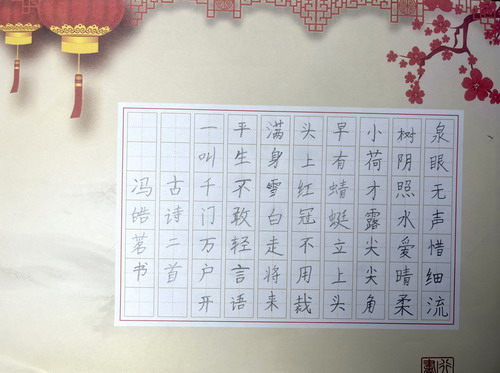 泉眼无声惜细流
树阴照水爱晴柔
小荷才露尖尖角
早有蜻蜓立上头
头上红冠不用裁
满身雪白走将来
平生不敢轻言语
一叫千门万户开
古诗二首
冯皓茗书